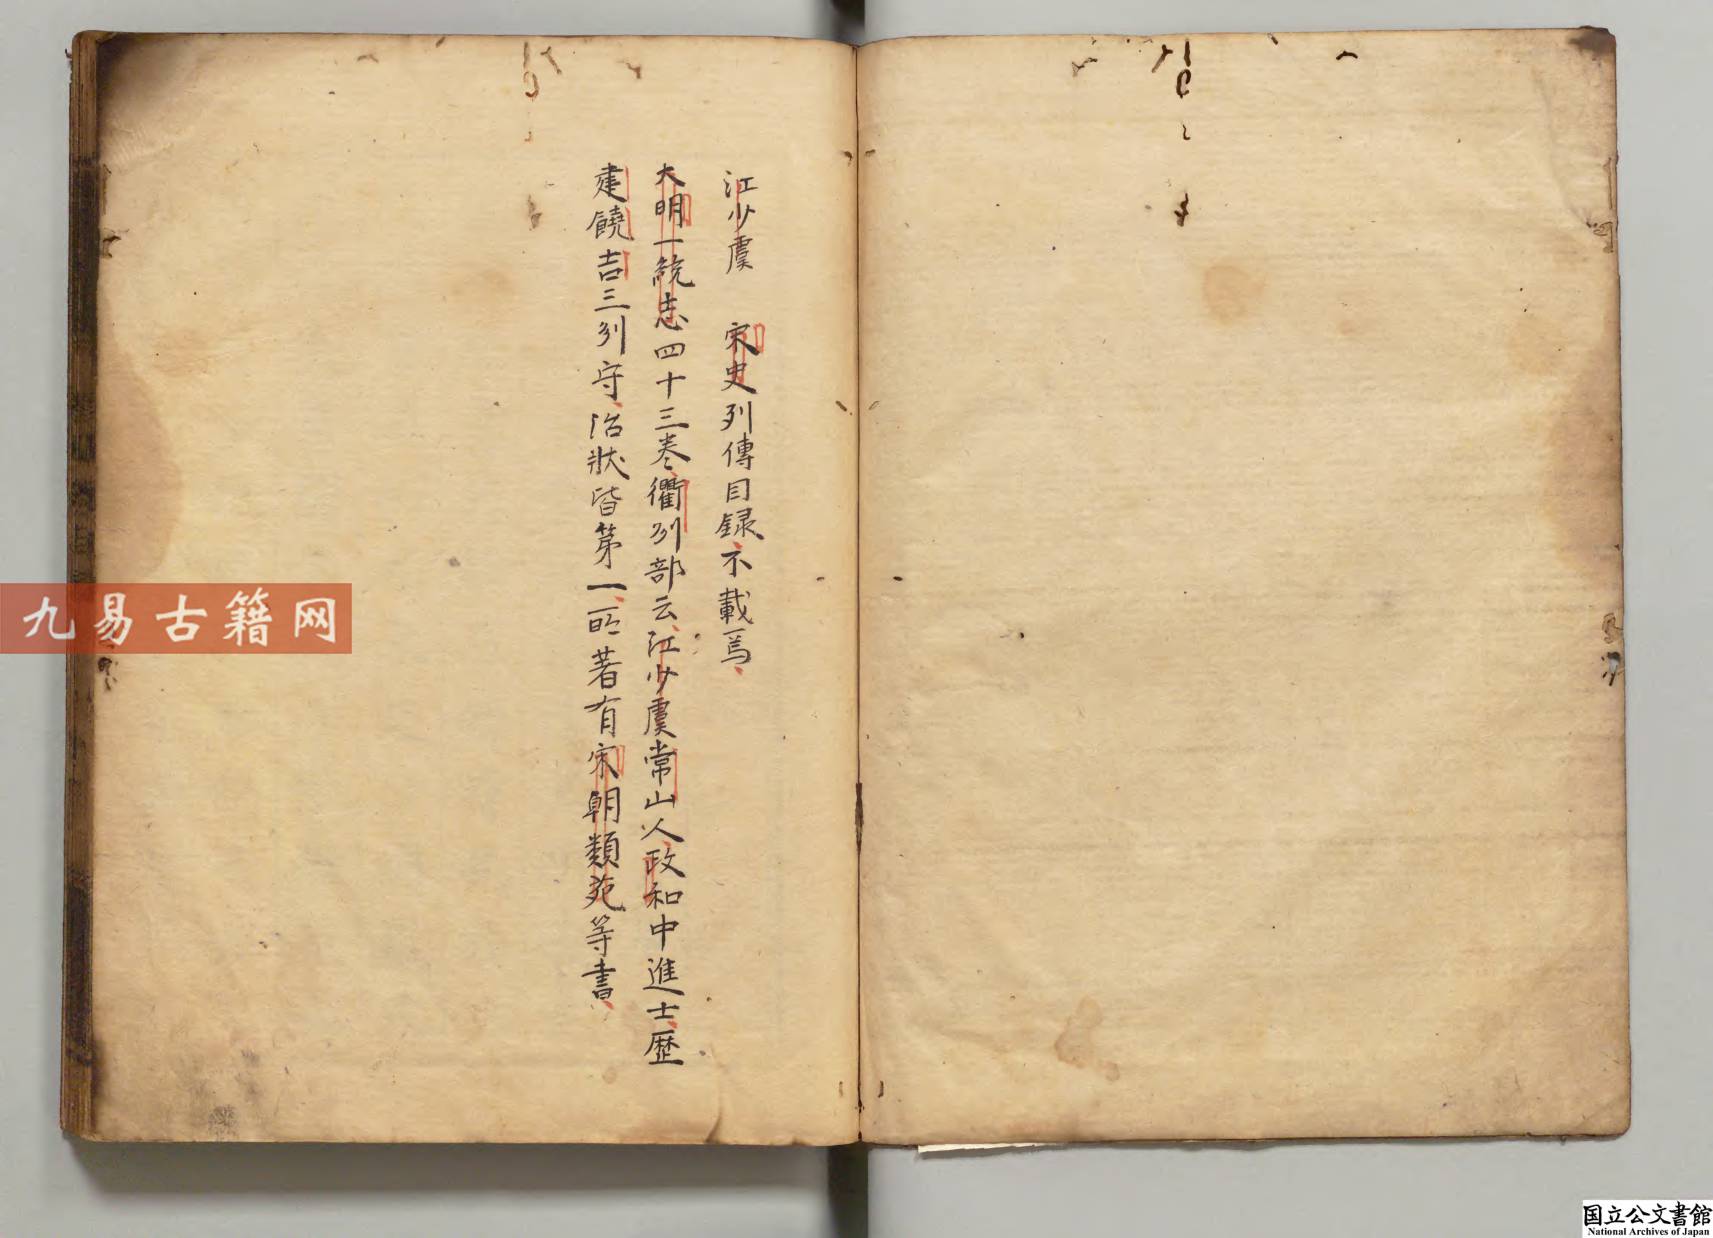 江少虞　宋史列傳目録不載焉
大明一統志四十三巻衢州部云江少虞常山人政和中進士歴
建饒吉三州守治狀皆第一所著有宋朝類苑等書
九易古籍网
国立公文書館
National Archives of Japan